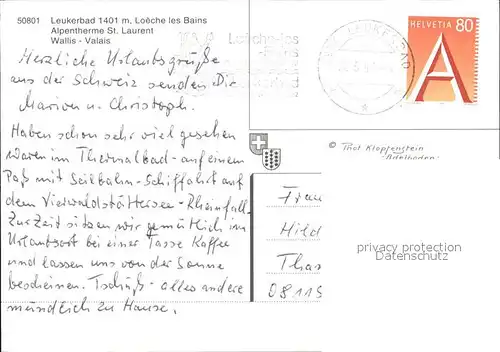 50801 Leukerbad 1401 m, Loèche les Bains
Alpentherme St. Laurent
Wallis - Valais
Herzliche Urlaubsgrüße
aus der Schweiz senden Dir
Marion u. Christoph.
Haben schon sehr viel gesehen
waren im Thermalbad - auf einem
Paß mit Seilbahn - Schiffahrt auf
dem Vierwaldstättersee - Rheinfall.
Zur Zeit sitzen wir gemütlich im
Urlaubsort bei einer Tasse Kaffee
und lassen uns von der Sonne
bescheinen. Tschüß - alles andere
mündlich zu Hause.
Loèche-les
LEUKERBAD
HELVETIA 80
A
© Phot Klopfenstein
Adelboden
Frau
Hild
Thas
08115
privacy protection
Datenschutz